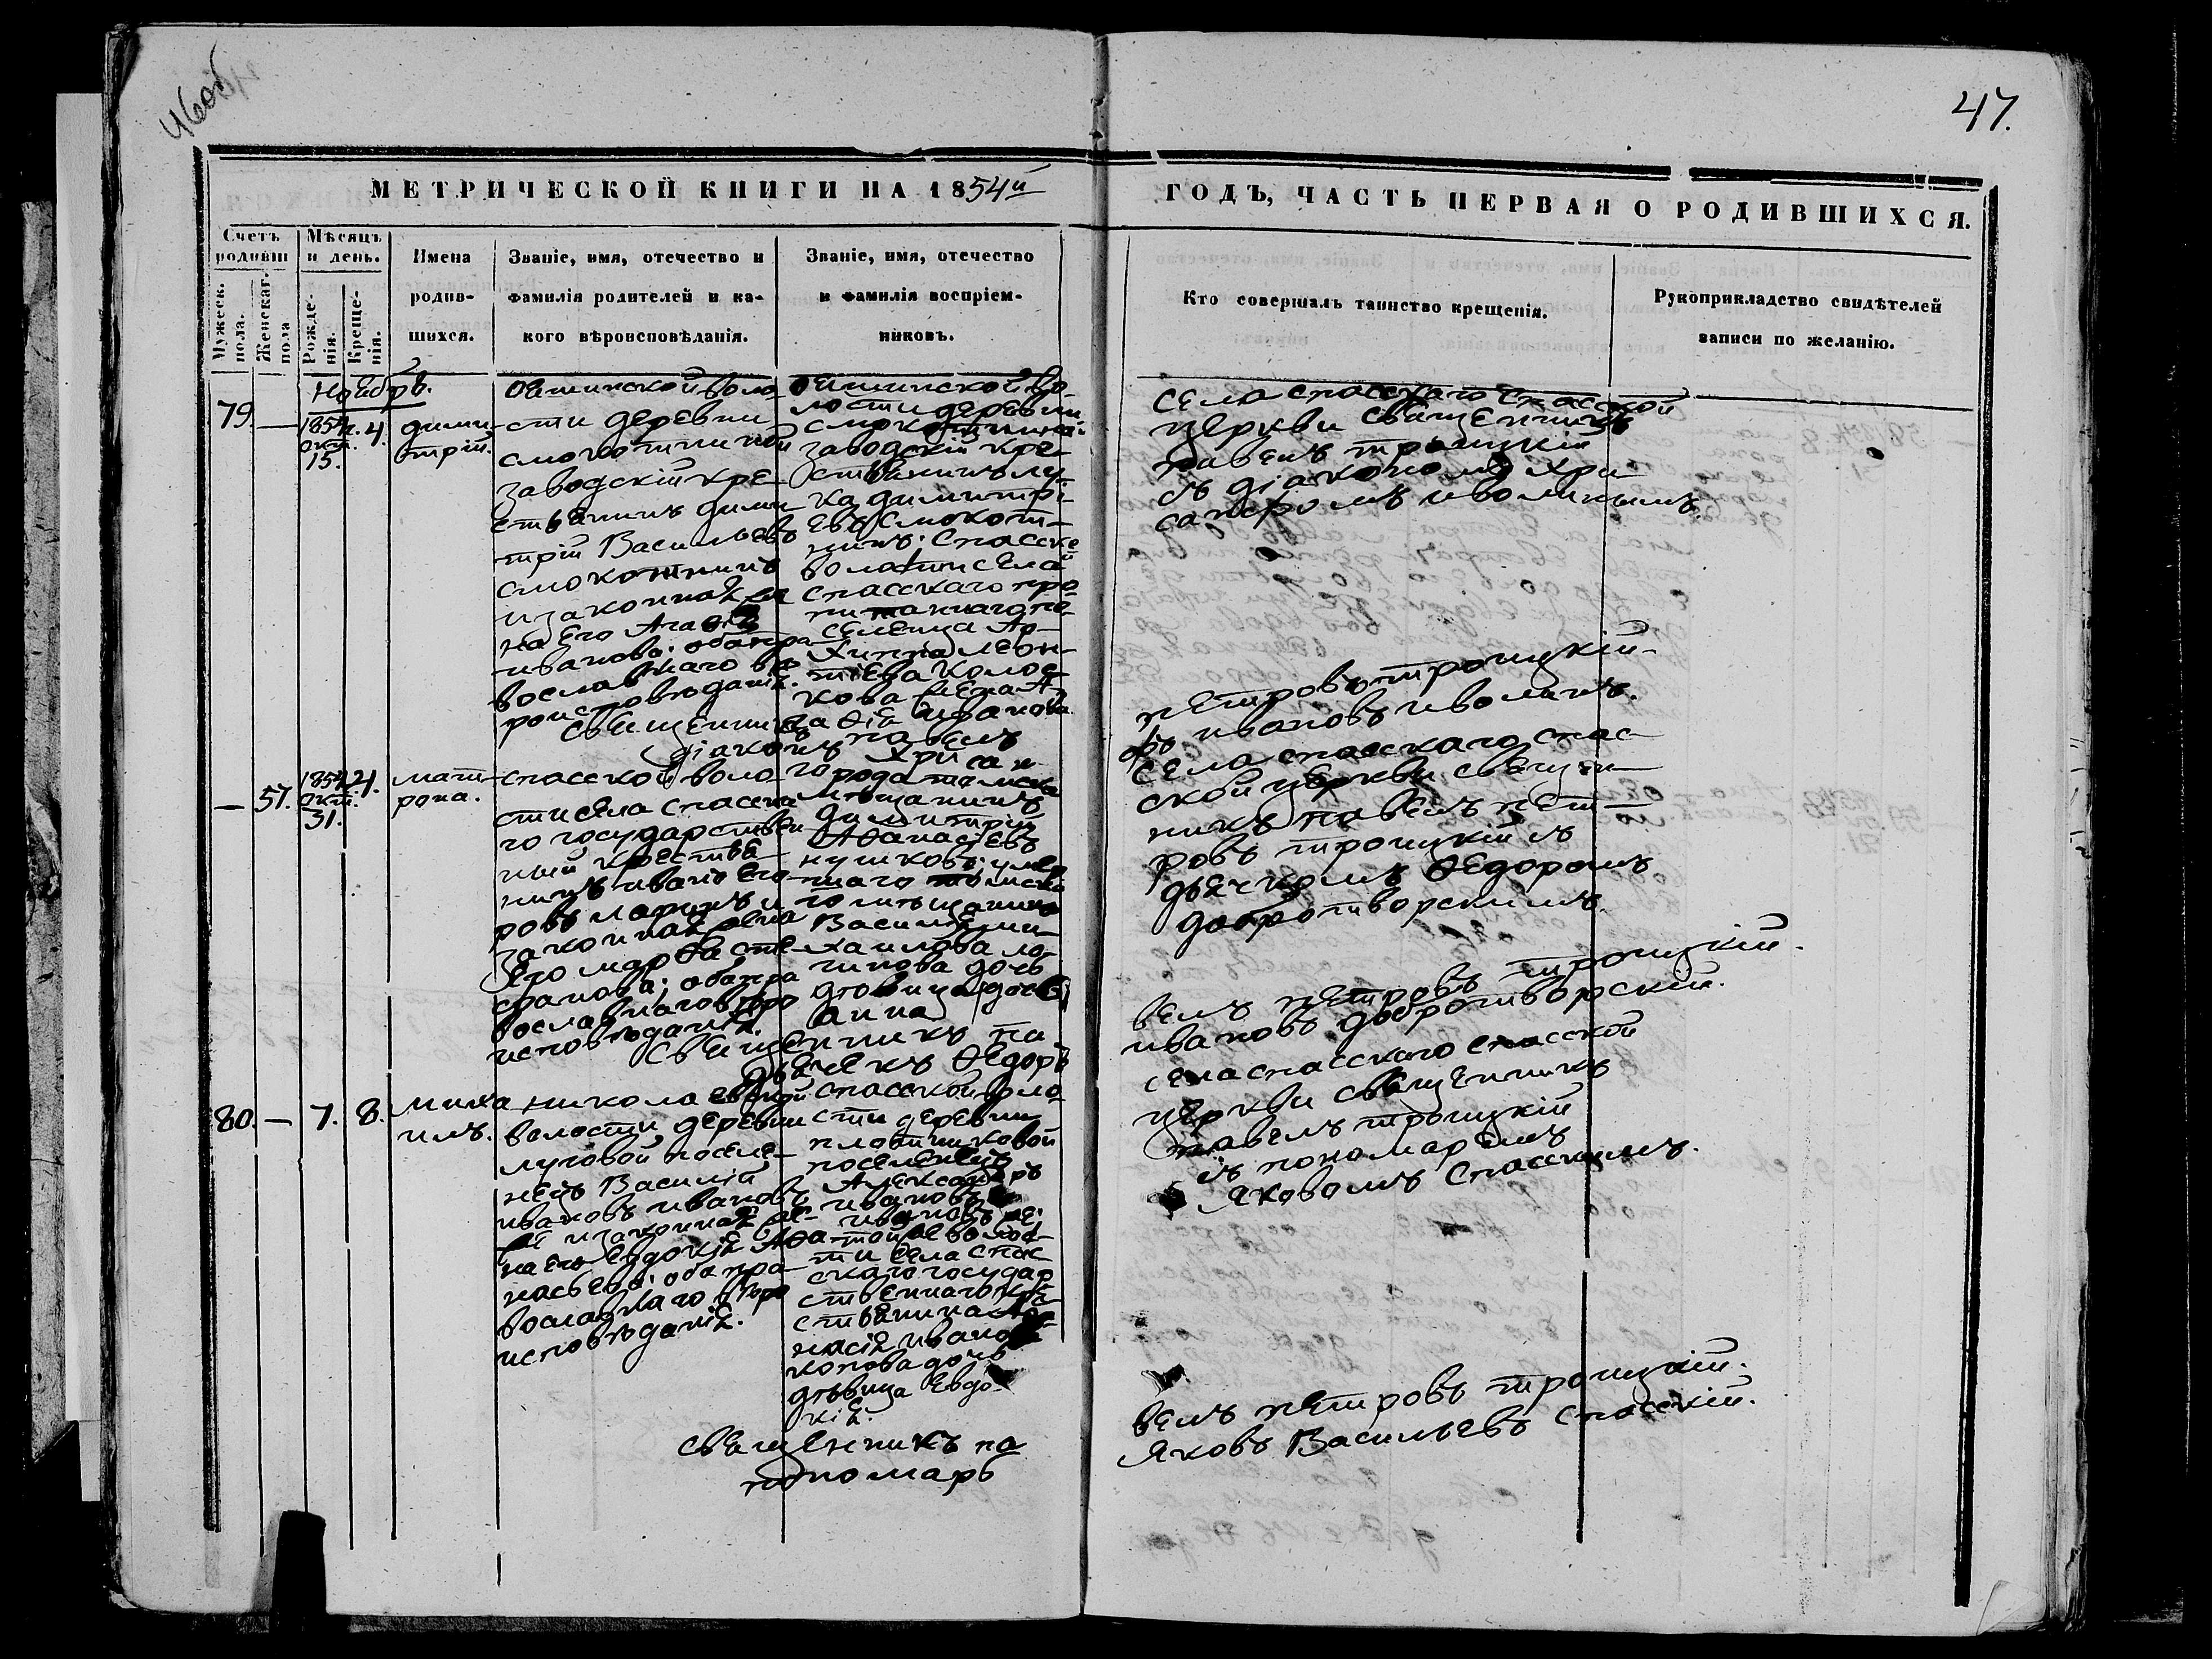 46об
47.
МЕТРИЧЕСКОЙ КНИГИ НА 1854й
ГОДЪ, ЧАСТЬ ПЕРВАЯ О РОДИВШИХСЯ.
Счетъ родивш
Мужеск. пола.
Женскаг. пола
Мѣсяцъ и день.
Рожде-нія.
Креще-нія.
Имена
родив-
шихся.
Званіе, имя, отечество и
фамилія родителей и ка-
кого вѣроисповѣданія.
Званіе, имя, отечество
и фамилія воспріем-
никовъ.
Кто совершалъ таинство крещенія.
Рукоприкладство свидѣтелей
записи по желанію.
Ноябрь.
79.
—
1854г.
окт.
15.
4.
дими-
трій.
волo-
сти деревни
смокотиной
заводскій кре-
стьянинъ дими-
трій Васильевъ
смокотнинъ
и законная же-
на его Агафія
иванова: оба пра-
вославнаго вѣ-
роисповѣданія.
во-
лости деревни
смокотиной
заводскій кре-
стьянинъ лу-
ка димитрі-
евъ смокот-
нинъ: Спасской
волости села
спасскаго про-
питаннаго по-
селенца Ар-
хиппа леон-
тіева Колос-
кова жена А-
гафія Иванова
села спасскаго спасской
церкви священникъ
павелъ троицкій
съ діакономъ Хри-
санфомъ иволинымъ.
священникъ павелъ
петровъ троицкій
діаконъ Хрисан-
фъ ивановъ иволинъ.
—
57.
1854г.
окт.
31.
4.
мат-
рона.
спасской воло-
сти села спасска
го государствен
ный крестья-
нинъ иванъ Его-
ровъ ларинъ и
законная жена
его марфа сте-
фанова: оба пра
вославнаго вѣро
исповѣданія.
города томска
мѣщанинъ
димитрій
Афанасіевъ
нушковъ: умер
шаго томска
го мѣщанина
Василія ми-
хаилова ло-
гинова дочь
дѣвица
анна
села спасскаго спас-
ской церкви священ-
никъ павелъ пет-
ровъ троицкій съ
дьячкомъ Ѳедоромъ
добротворскимъ.
священникъ па-
велъ петровъ троицкій.
дьячекъ Ѳедоръ
ивановъ добротворскій.
80.
—
7.
8.
миха
илъ.
николаевской
волости деревни
луговой поселе-
нецъ Василій
ивановъ ивановъ
и законная же-
на его Евдокія Афа
насьева: оба пра-
вославнаго вѣро
исповѣданія.
спасской воло-
сти деревни
плотниковой
поселенецъ
Александръ
ивановъ
ивановъ:
той же волос-
ти села спас-
скаго государ
ственнаго кре-
стьянина Афа
насія ивано-
дочь
дѣвица Евдо-
кія.
села спасскаго спасской
церкви священникъ
павелъ троицкій
съ пономаремъ
Яковомъ Спасскимъ.
священникъ па
велъ петровъ троицкій.
пономарь
Яковъ Васильевъ Спасскій.